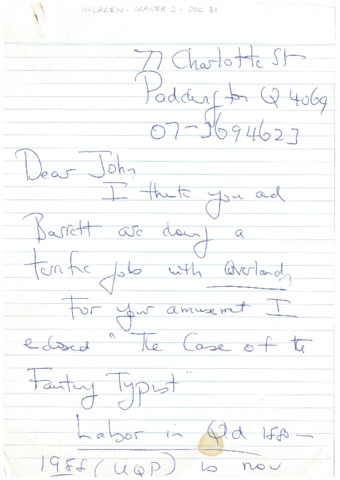 McLAREN - DRAWER 2 - DOC 31
77 Charlotte St
Paddington Q 4064
07-3694623
Dear John
I think you and
Barrett are doing a
terrific job with Overland,
For your amusement I
enclosed "The Case of the
Fainting Typist"
Labor in Qld 1880 -
1988 (UQP) is now